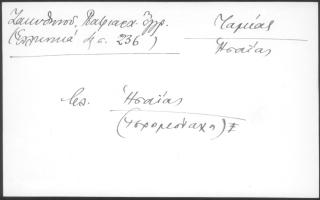 Ζακυνθηνού, Πατριαρχ. Έγγρ.
(Ελληνικά 4, σ. 236)
Ταμίας
Ησαΐας
βλ. Ἡσαΐας
(Ιερομονάχου)